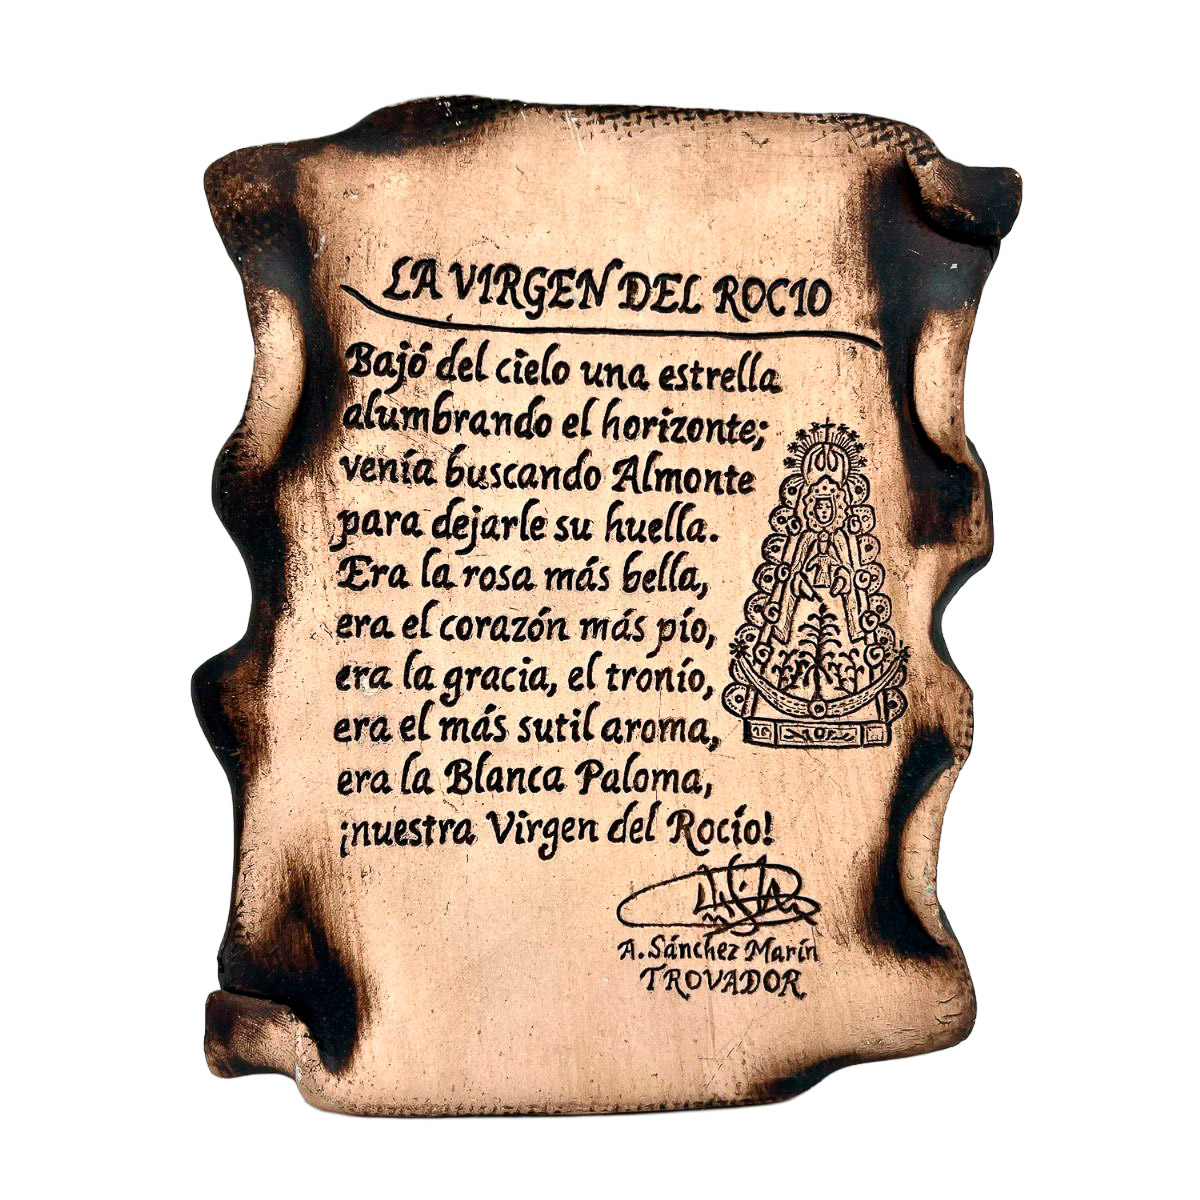 LA VIRGEN DEL ROCIO
Bajó del cielo una estrella
alumbrando el horizonte;
venía buscando Almonte
para dejarle su huella.
Era la rosa más bella,
era el corazón más pío,
era la gracia, el tronío,
era el más sutil aroma,
era la Blanca Paloma,
¡nuestra Virgen del Rocío!
A. Sánchez Marín
TROVADOR